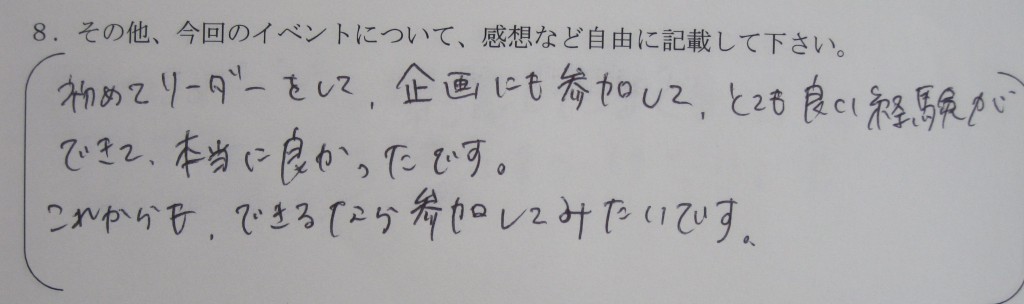 8．その他、今回のイベントについて、感想など自由に記載して下さい。
初めてリーダーをして、企画にも参加して、とても良い経験が
できて、本当に良かったです。
これからも、できるなら参加してみたいです。